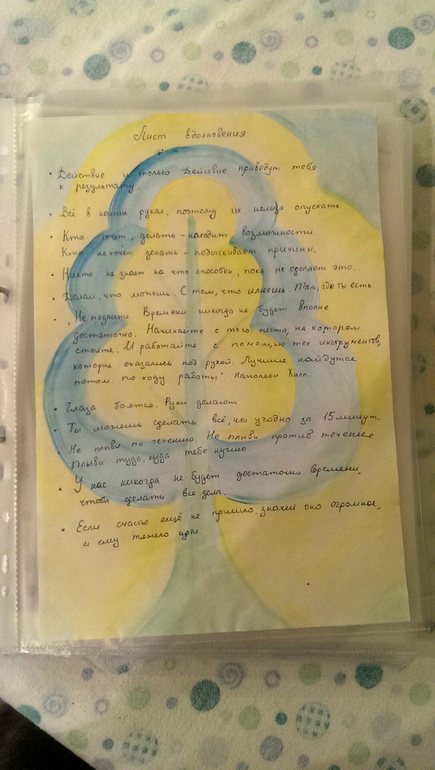 Лист вдохновения
• Действие и только Действие приведут тебя
к результату.
• Всё в наших руках, поэтому их нельзя опускать.
• Кто хочет, делать – находит возможности.
Кто не хочет делать – подыскивает причины.
• Никто не знает на что способен, пока не сделает это.
• Делай, что можешь. С тем, что имеешь. Там, где ты есть.
• "Не медлите. Времени никогда не будет вполне
достаточно. Начинайте с того места, на котором
стоите. И работайте с помощью тех инструментов,
которые оказались под рукой. Лучшие найдутся
потом по ходу работы". Наполеон Хилл.
• Глаза боятся. Руки делают
• Ты можешь сделать всё, что угодно за 15 минут.
• Не плыви по течению. Не плыви против теченье
Плыви туда, куда тебе нужно.
• У нас никогда не будет достаточно времени,
чтобы сделать все дела.
• Если счастье ещё не пришло, значит оно огромное,
и ему тяжело идти.